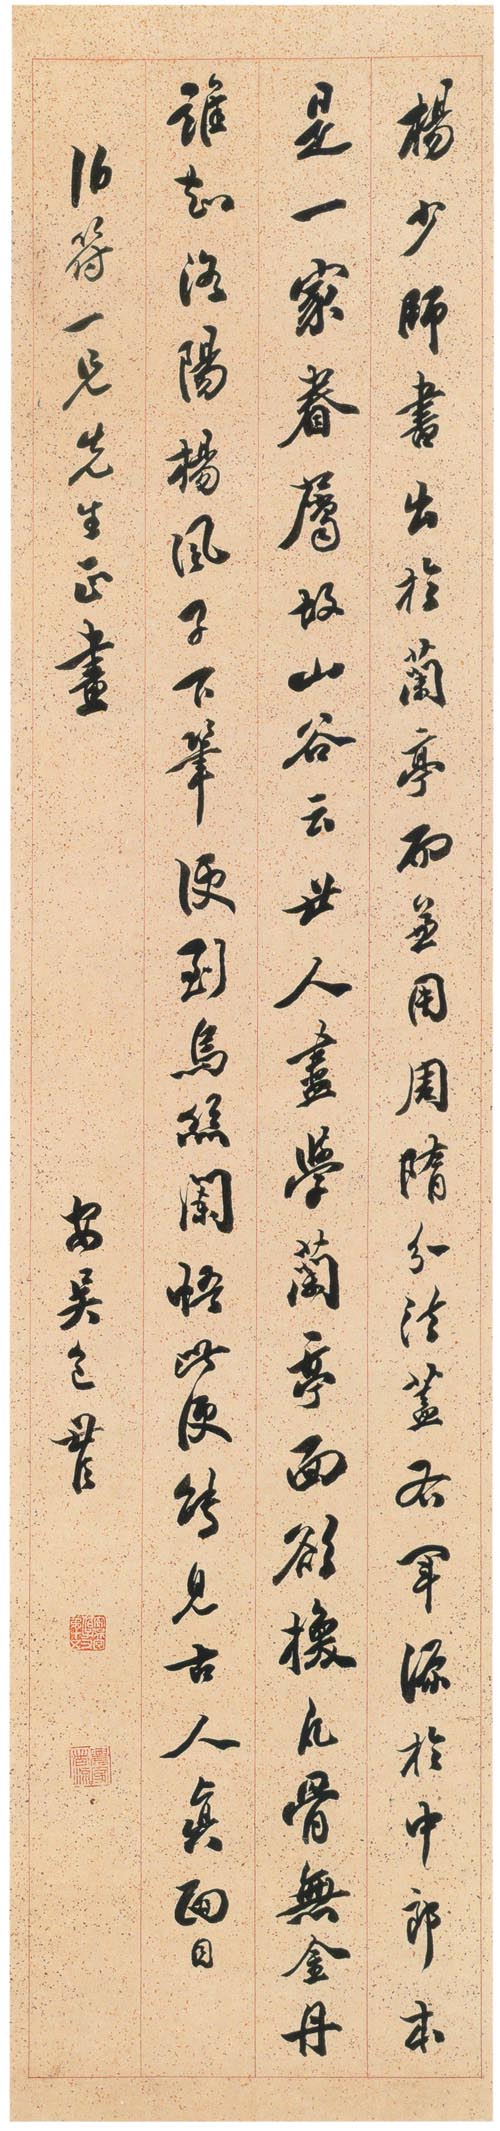 楊少師書出於蘭亭而兼用周隋分法蓋右軍源於中郎本
是一家眷屬故山谷云世人盡學蘭亭面欲換凡骨無金丹
誰知洛陽楊風子下筆便到烏絲闌悟此便能見古人真面目
伯符一兄先生正畫
安吳包世臣